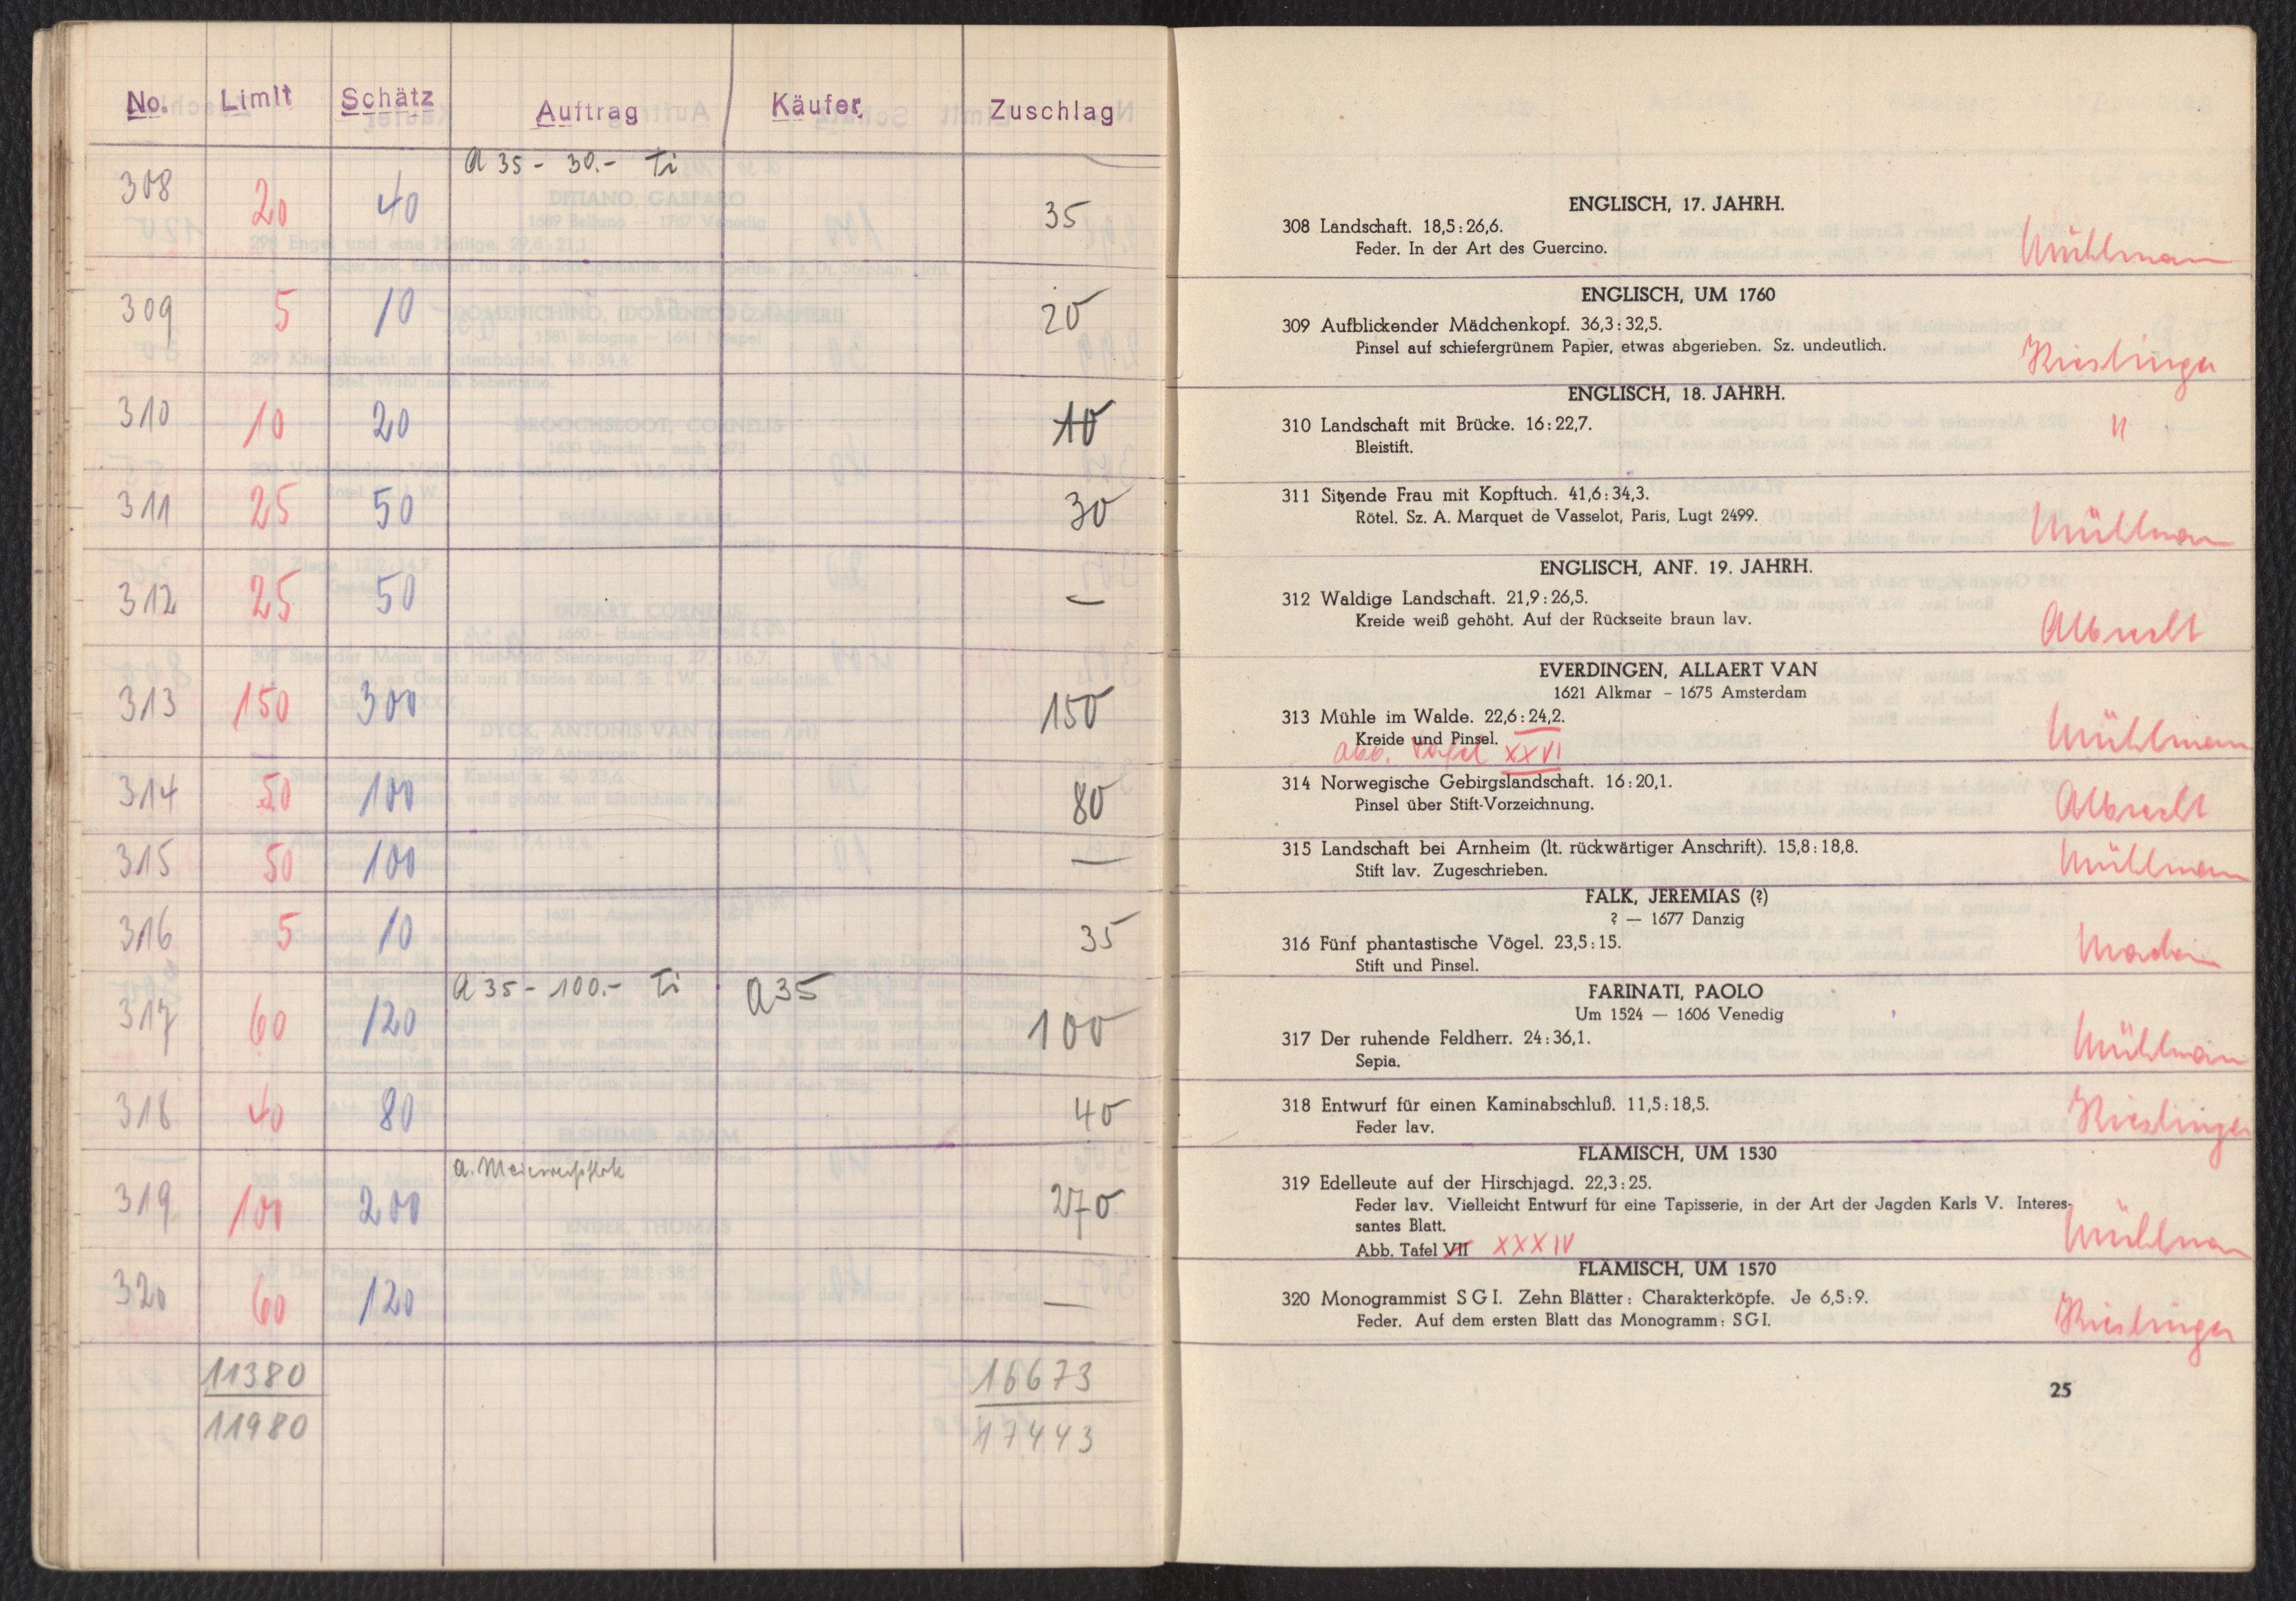 No. Limit Schätz Auftrag Käufer, Zuschlag
a 35 - 30.- Ti
308 20 40 35
309 5 10 20
310 10 20 10
311 25 50 30
312 25 50 —
313 150 300 150
314 50 100 80
315 50 100 —
316 5 10 35
a 35 - 100.- Ti a 35
317 60 120 100
318 40 80 40
a.
319 100 200 270
320 60 120 —
11380 16673
11980 17443
ENGLISCH, 17. JAHRH.
308 Landschaft. 18,5:26,6.
Feder. In der Art des Guercino.
Mühlman
ENGLISCH, UM 1760
309 Aufblickender Mädchenkopf. 36,3:32,5.
Pinsel auf schiefergrünem Papier, etwas abgerieben. Sz. undeutlich.
Kieslinger
ENGLISCH, 18. JAHRH.
310 Landschaft mit Brücke. 16:22,7. "
Bleistift.
311 Sitzende Frau mit Kopftuch. 41,6:34,3.
Rötel. Sz. A. Marquet de Vasselot, Paris, Lugt 2499.
Mühlman
ENGLISCH, ANF. 19. JAHRH.
312 Waldige Landschaft. 21,9:26,5.
Kreide weiß gehöht. Auf der Rückseite braun lav.
Albrecht
EVERDINGEN, ALLAERT VAN
1621 Alkmar – 1675 Amsterdam
313 Mühle im Walde. 22,6:24,2.
Kreide und Pinsel.
Mühlman
Abb. Tafel XXVI
314 Norwegische Gebirgslandschaft. 16:20,1.
Pinsel über Stift-Vorzeichnung.
Albrecht
315 Landschaft bei Arnheim (lt. rückwärtiger Anschrift). 15,8:18,8.
Stift lav. Zugeschrieben.
Mühlman
FALK, JEREMIAS (?)
? — 1677 Danzig
316 Fünf phantastische Vögel. 23,5:15.
Stift und Pinsel.
FARINATI, PAOLO
Um 1524 — 1606 Venedig
317 Der ruhende Feldherr. 24:36,1.
Sepia.
Mühlman
318 Entwurf für einen Kaminabschluß. 11,5:18,5.
Feder lav.
Kieslinger
FLÄMISCH, UM 1530
319 Edelleute auf der Hirschjagd. 22,3:25.
Feder lav. Vielleicht Entwurf für eine Tapisserie, in der Art der Jagden Karls V. Interes-
santes Blatt.
Mühlman
Abb. Tafel VII XXXIV
FLÄMISCH, UM 1570
320 Monogrammist S G I. Zehn Blätter: Charakterköpfe. Je 6,5:9.
Feder. Auf dem ersten Blatt das Monogramm: S G I.
Kieslinger
25